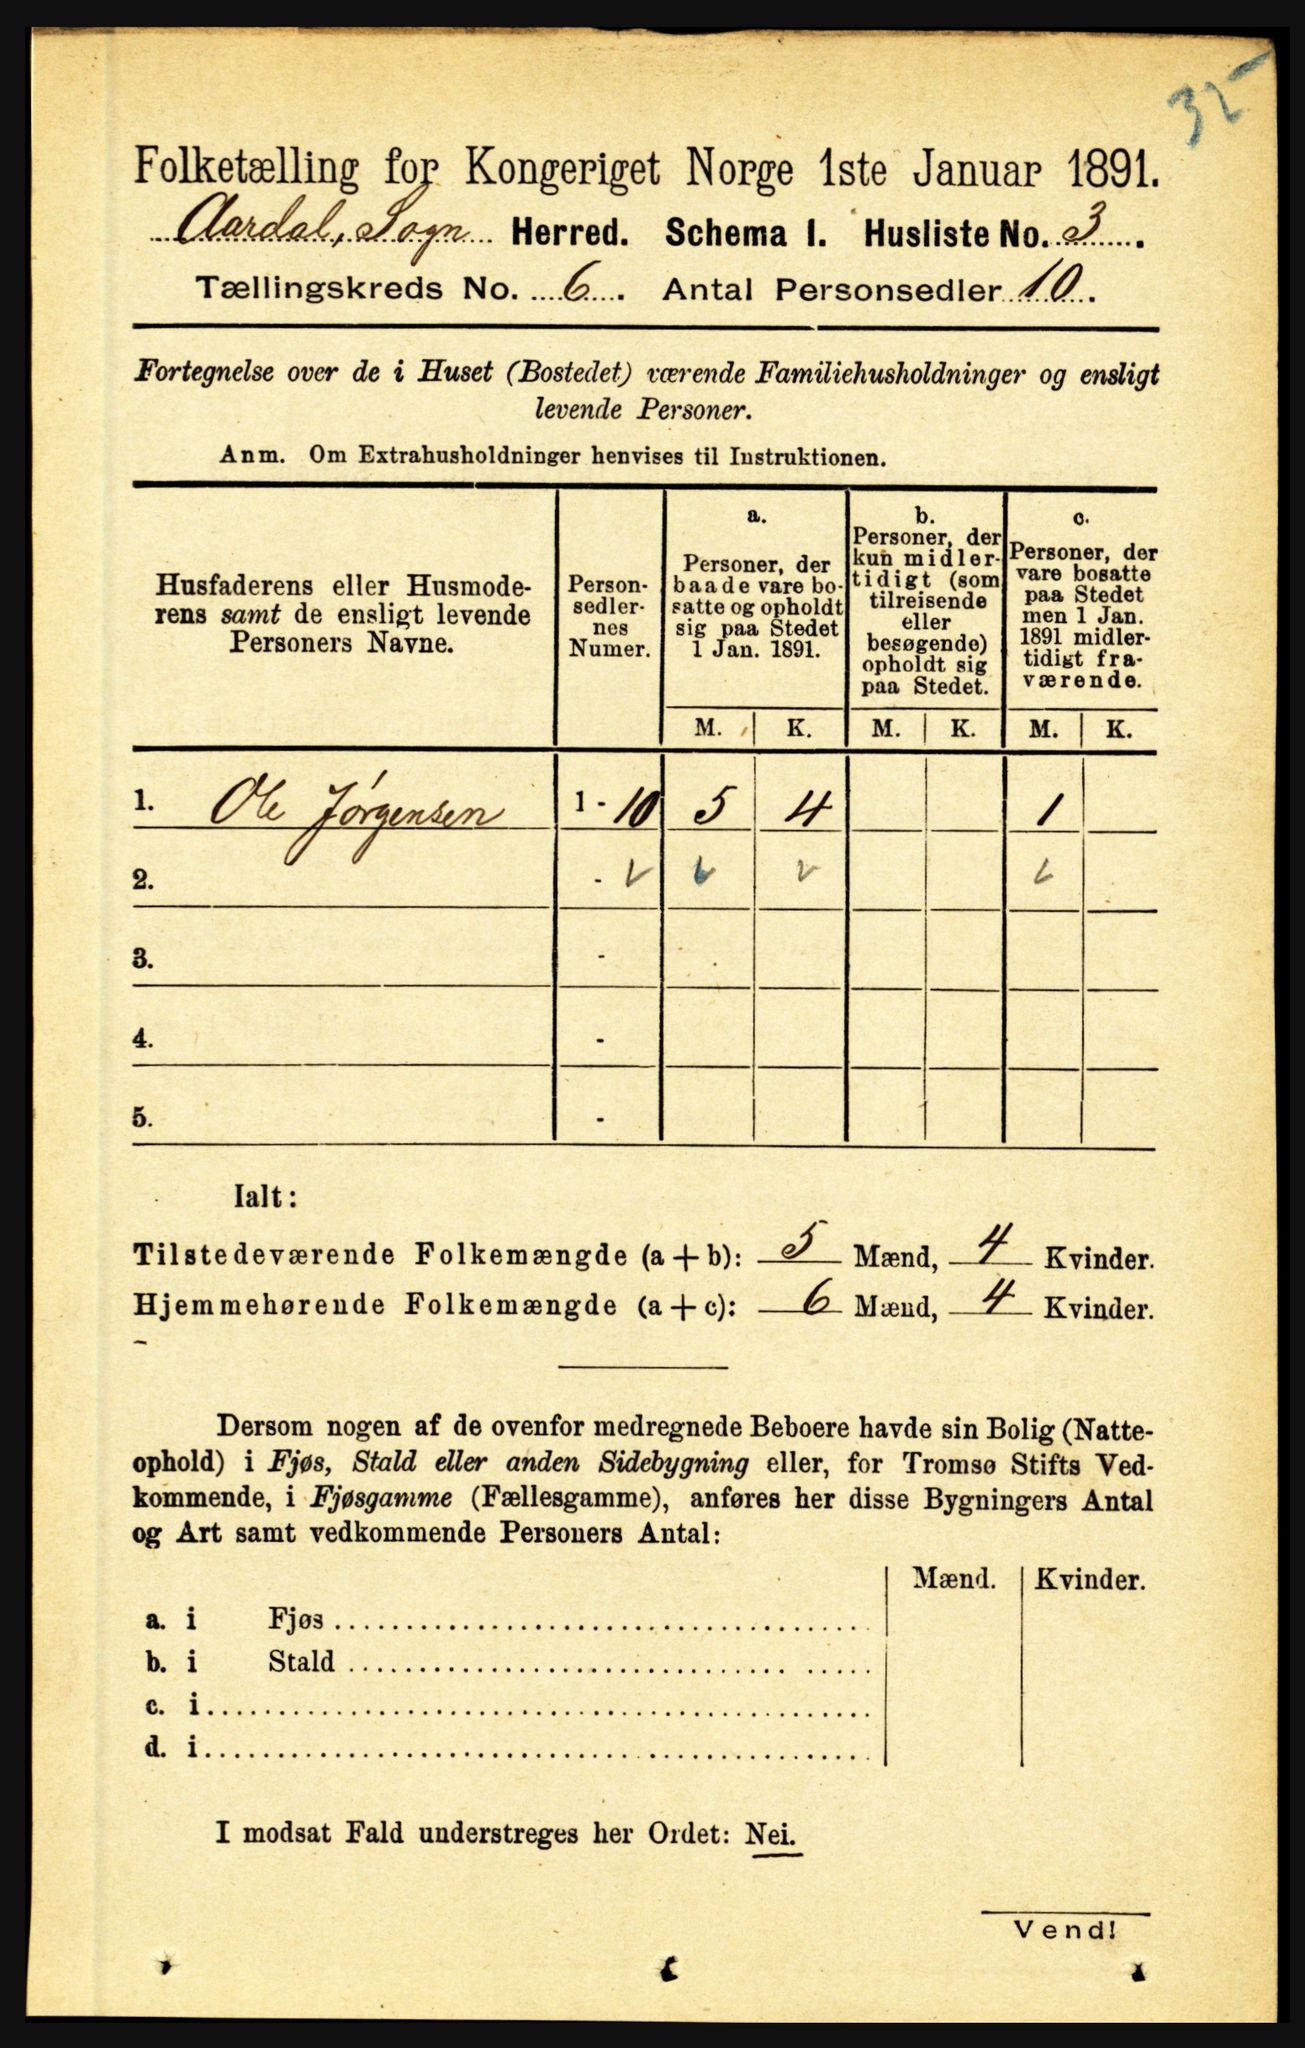 32
Folketælling for Kongeriget Norge 1ste Januar 1891.
Aardal, Sogn Herred. Schema I. Husliste No. 3.
Tællingskreds No. 6. Antal Personsedler 10.
Fortegnelse over de i Huset (Bostedet) værende Familiehusholdninger og ensligt
levende Personer.
Anm. Om Extrahusholdninger henvises til Instruktionen.
Husfaderens eller Husmode-
rens samt de ensligt levende
Personers Navne.
Person-
sedler-
nes
Numer.
a.
Personer, der
baade vare bo-
satte og opholdt
sig paa Stedet
1 Jan. 1891.
b.
Personer, der
kun midler-
tidigt (som
tilreisende
eller
besøgende)
opholdt sig
paa Stedet.
c.
Personer, der
vare bosatte
paa Stedet
men 1 Jan.
1891 midler-
tidigt fra-
værende.
M. K. M. K. M. K.
1. Ole Jørgensen 1 - 10 5 4 1
2. -
3. -
4. -
5. -
Ialt:
Tilstedeværende Folkemængde (a + b): 5 Mænd, 4 Kvinder.
Hjemmehørende Folkemængde (a + c): 6 Mænd, 4 Kvinder.
Dersom nogen af de ovenfor medregnede Beboere havde sin Bolig (Natte-
ophold) i Fjøs, Stald eller anden Sidebygning eller, for Tromsø Stifts Ved-
kommende, i Fjøsgamme (Fællesgamme), anføres her disse Bygningers Antal
og Art samt vedkommende Personers Antal:
Mænd. Kvinder.
a. i Fjøs
b. i Stald
c. i
d. i
I modsat Fald understreges her Ordet: Nei.
Vend!